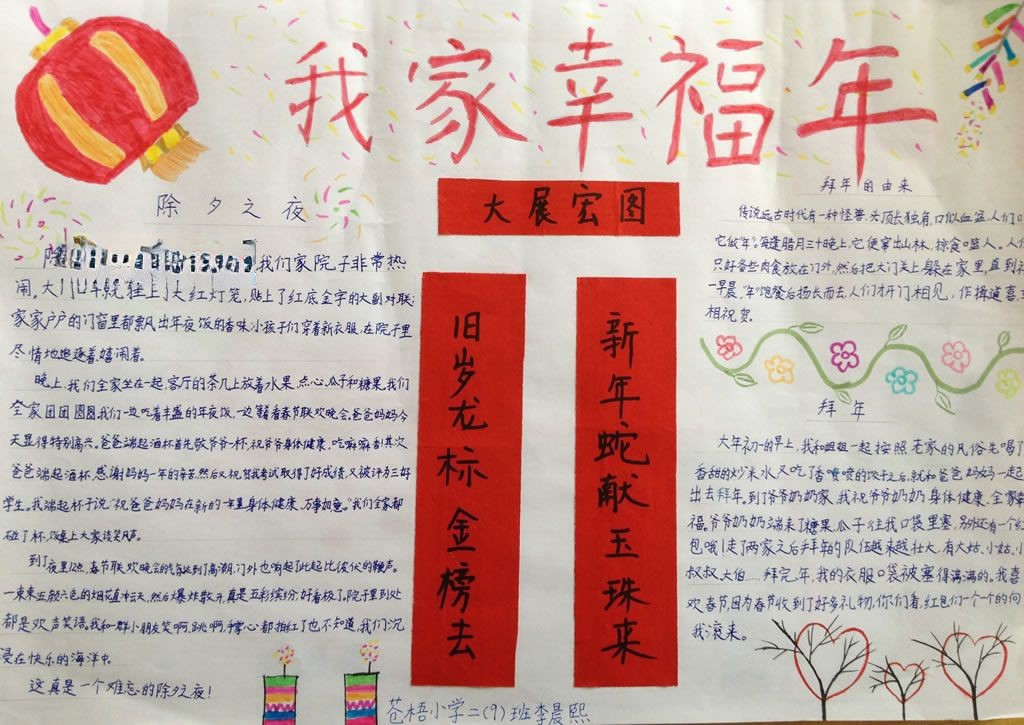 我家幸福年
除夕之夜
我们家院子非常热
闹。大门早就挂上大红灯笼,贴上了红底金字的大副对联
家家户户的门窗里都飘出年夜饭的香味小孩子们穿着新衣服,在院子里
尽情地追逐着嬉闹着。
晚上,我们全家坐在一起,客厅的茶几上放着水果、点心、瓜子和糖果,我们
全家团团圆圆我们一边吃着丰盛的年夜饭,一边看着春节联欢晚会,爸爸妈妈今
天显得特别高兴。爸爸端起酒杯首先敬爷爷一杯,祝爷爷身体健康,吃嘛嘛香!其次
爸爸端起酒杯,感谢妈妈一年的辛苦然后又祝贺我考试取得了好成绩,又被评为三好
学生。我端起杯子说"祝爸爸妈妈在新的一年里身体健康、万事如意。"我们全家都
碰了杯,饭桌上大家谈笑风声。
到了夜里12点,春节联欢晚会的气氛达到了高潮,门外也响起了此起比彼伏的鞭声。
一束束五颜六色的烟花直冲云天,然后爆炸散开,真是五彩缤纷,好看极了。院子里到处
都是欢声笑语。我和一群小朋友笑啊,跳啊,手掌心都拍红了也不知道,我们沉
浸在快乐的海洋中。
这真是一个难忘的除夕之夜!
大展宏图
旧岁龙标金榜去
新年蛇献玉珠来
拜年的由来
传说远古时代有一种怪兽,头顶长独角,口似血盆,人们
它做"年"。每逢腊月三十晚上,它便窜出山林、掠食噬人。人
只好备些肉食放在门外,然后把大门关上,躲在家里,直到
一早晨,"年"饱餐后扬长而去,人们才开门相见,作揖道喜
相祝贺。
拜年
大年初一的早上,我和姐姐一起按照老家的风俗先喝了
香甜的炒米水又吃了香喷喷的饺子之后,就和爸爸妈妈一起
出去拜年。到了爷爷奶奶家,我祝爷爷奶奶身体健康、全家幸
福。爷爷奶奶端来了糖果、瓜子往我口袋里塞,别还有一个红
包哦!走了两家之后拜年的队伍越来越壮大,有大姑、小姑、小
叔叔、大伯……拜完年,我的衣服口袋被塞得满满的。我喜
欢春节,因为春节收到了好多礼物,你们看,红包们一个个的向
我滚来。
苍梧小学二(9)班李晨熙